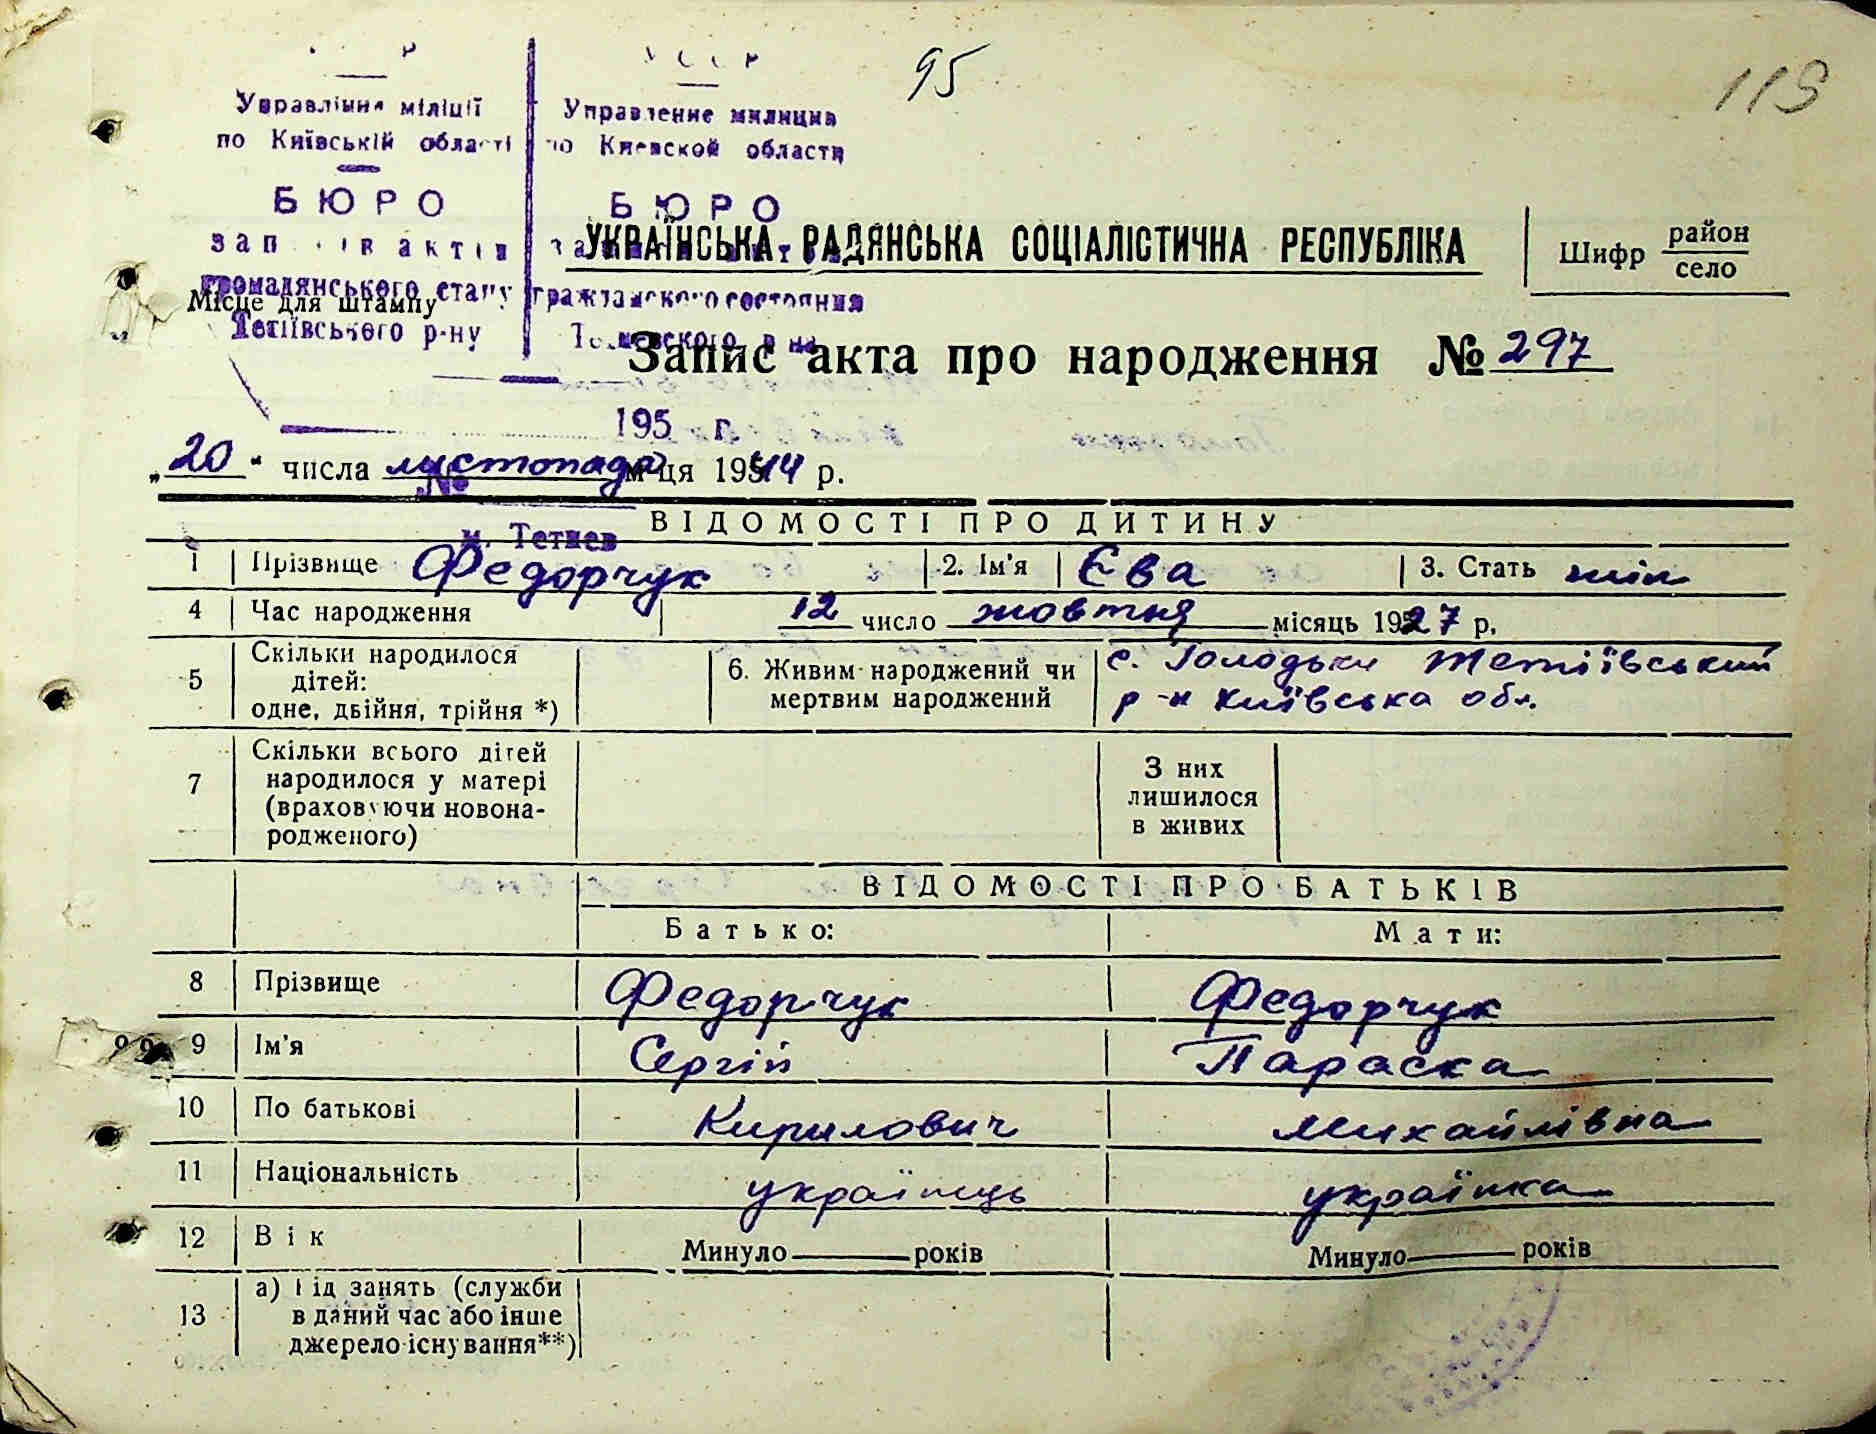 95
119
Управління міліції
по Київській області
БЮРО
записів актів
громадянського стану
Тетіївського р-ну
Управление милиции
по Киевской области
БЮРО
гражданского состояния
Тетиевского р-на
195 г.
№
м. Тетиев
УКРАЇНСЬКА РАДЯНСЬКА СОЦІАЛІСТИЧНА РЕСПУБЛІКА
Шифр район
село
Місце для штампу
Запис акта про народження № 297
„20“ числа листопада м-ця 1944 р.
ВІДОМОСТІ ПРО ДИТИНУ
1 Прізвище Федорчук 2. Ім'я Єва 3. Стать жін
4 Час народження 12 число жовтня місяць 1927 р.
5 Скільки народилося дітей: одне, двійня, трійня *) 6. Живим народжений чи мертвим народжений с. Голодьки Тетіївський р-н Київська обл.
7 Скільки всього дітей народилося у матері (враховуючи новонародженого) З них лишилося в живих
ВІДОМОСТІ ПРО БАТЬКІВ
Батько: Мати:
8 Прізвище Федорчук Федорчук
9 Ім'я Сергій Параска
10 По батькові Кирилович Михайлівна
11 Національність українець українка
12 Вік Минуло років Минуло років
13 а) Під занять (служби в даний час або інше джерело існування**)